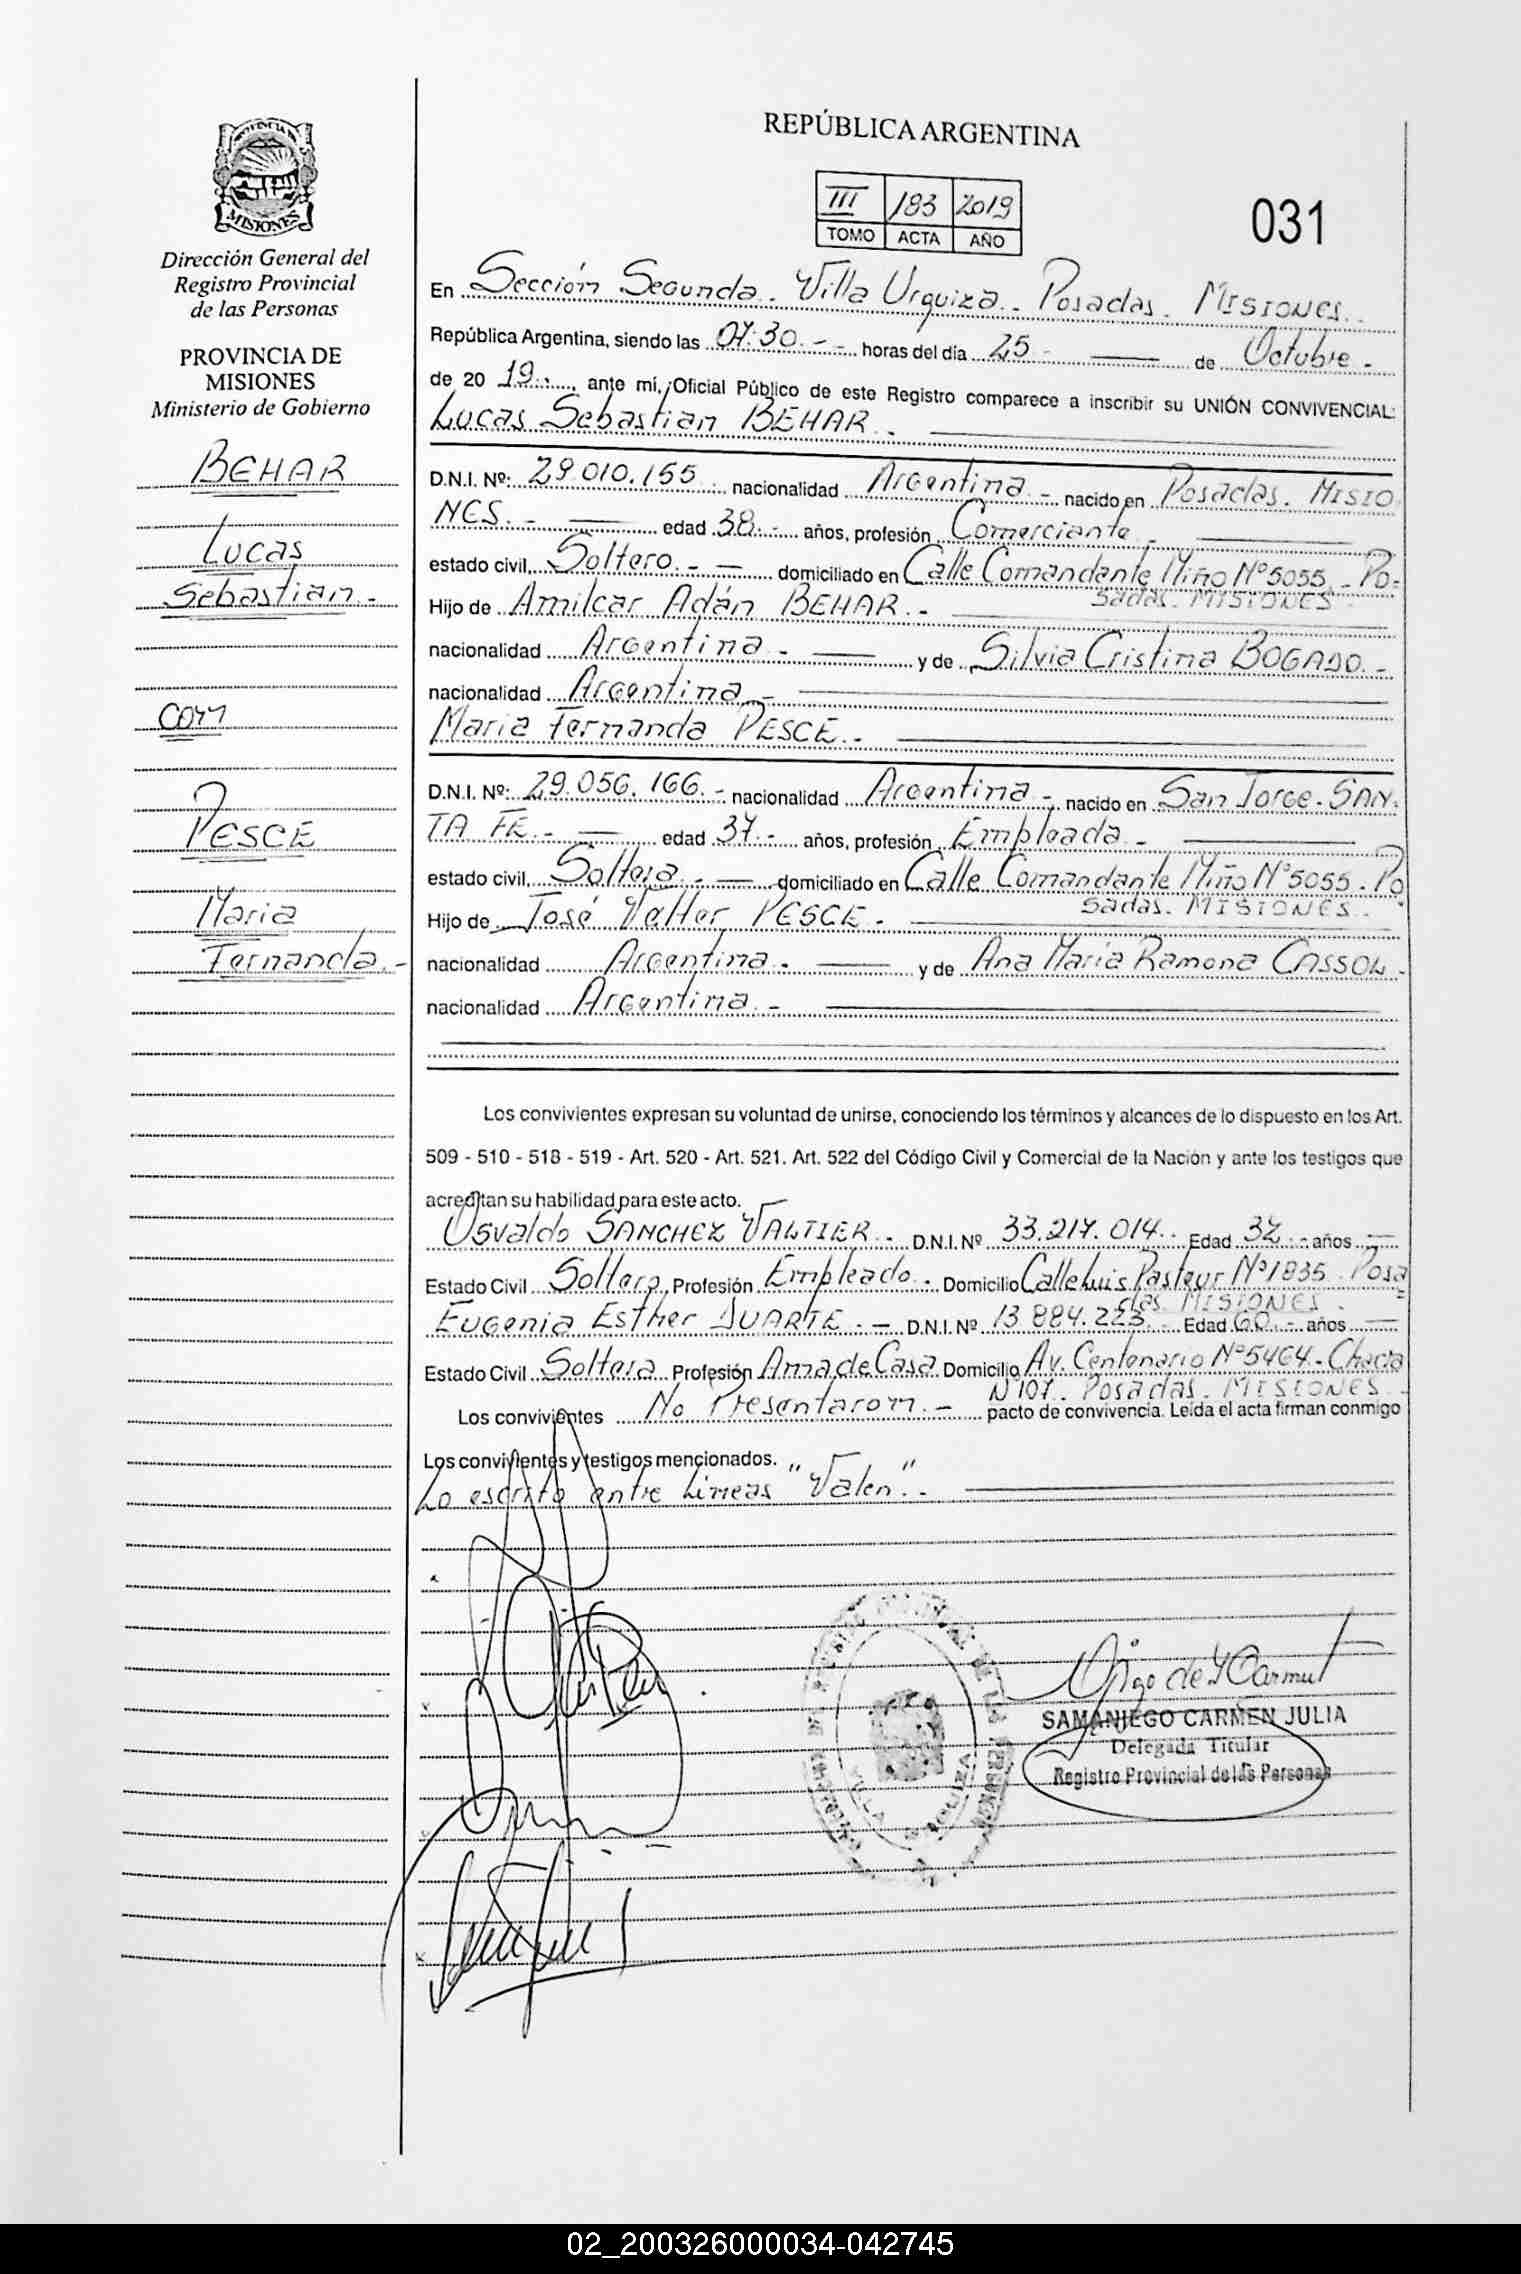 REPÚBLICA ARGENTINA
PROVINCIA DE
MISIONES
Dirección General del
Registro Provincial
de las Personas
PROVINCIA DE
MISIONES
Ministerio de Gobierno
BEHAR
Lucas
Sebastian.-
con
PESCE
Maria
Fernanda.-
III 183 2019
TOMO ACTA AÑO
031
En Sección Segunda. Villa Urquiza.. Posadas. MISIONES..
República Argentina, siendo las 07:30.-- horas del día 25- de Octubre.-
de 20 19.-, ante mí, Oficial Público de este Registro comparece a inscribir su UNIÓN CONVIVENCIAL:
Lucas Sebastian BEHAR.-
D.N.I. Nº: 29.010.155. nacionalidad Argentina.- nacido en Posadas. MISIO
NES.- edad 38.- años, profesión Comerciante.-
estado civil Soltero.- domiciliado en Calle Comandante Miño Nº5055.-Po-
sadas. MISIONES-
Hijo de Amilcar Adán BEHAR.-
nacionalidad Argentina.- y de Silvia Cristina BOGADO.-
nacionalidad Argentina.-
Maria Fernanda PESCE.-
D.N.I. Nº: 29.056.166.- nacionalidad Argentina.- nacido en San Jorge-SAN-
TA FE.- edad 37.- años, profesión Empleada.-
estado civil Soltera.- domiciliado en Calle Comandante Miño Nº5055.Po
sadas. MISIONES..
Hijo de José Valter PESCE.-
nacionalidad Argentina.- y de Ana Maria Ramona CASSOL.-
nacionalidad Argentina.-
Los convivientes expresan su voluntad de unirse, conociendo los términos y alcances de lo dispuesto en los Art.
509 - 510 - 518 - 519 - Art. 520 - Art. 521. Art. 522 del Código Civil y Comercial de la Nación y ante los testigos que
acreditan su habilidad para este acto.
Osvaldo SANCHEZ VALTIER.. D.N.I. Nº 33.217.014.. Edad 32.- años
Estado Civil Soltero Profesión Empleado.- Domicilio Calle Luis Pasteur Nº1835.Posa
das. MISIONES.
Eugenia Esther DUARTE.- D.N.I. Nº 13.884.223.- Edad 60.- años
Estado Civil Soltera Profesión Ama de Casa Domicilio Av. Centenario Nº5464-Chacra
Nº107. Posadas. MISIONES.-
Los convivientes No Presentaron.- pacto de convivencia. Leída el acta firman conmigo
Los convivientes y testigos mencionados.
Lo escrito entre Lineas "Valen".-
SAMANIEGO CARMEN JULIA
Delegada Titular
Registro Provincial de las Personas
VILLA URQUIZA
02_200326000034-042745